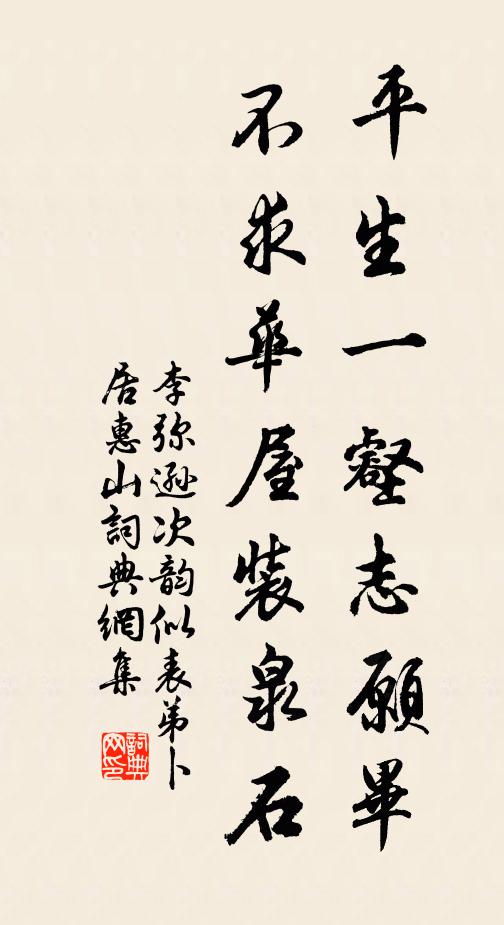 平生一壑志願畢
不求華屋裝泉石
李弥遜次韵似表弟卜
居惠山詞典網集
詞典網印